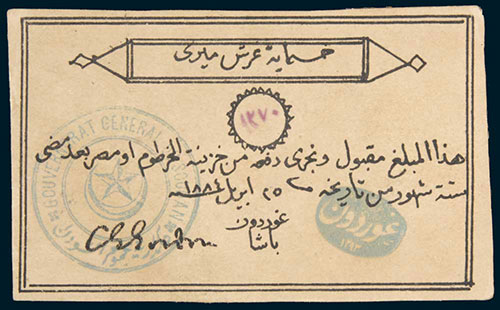 خمسماية غرش ميري
١٢٧٠
هذا المبلغ مقبول ونجرى دفعه من خزينة الخرطوم او مصر بعد مضى
ستة شهور من تاريخه ٢٥ ابريل ١٨٨٤ سنه
غوردون
باشا
GOUVERNORAT GENERAL
غوردون